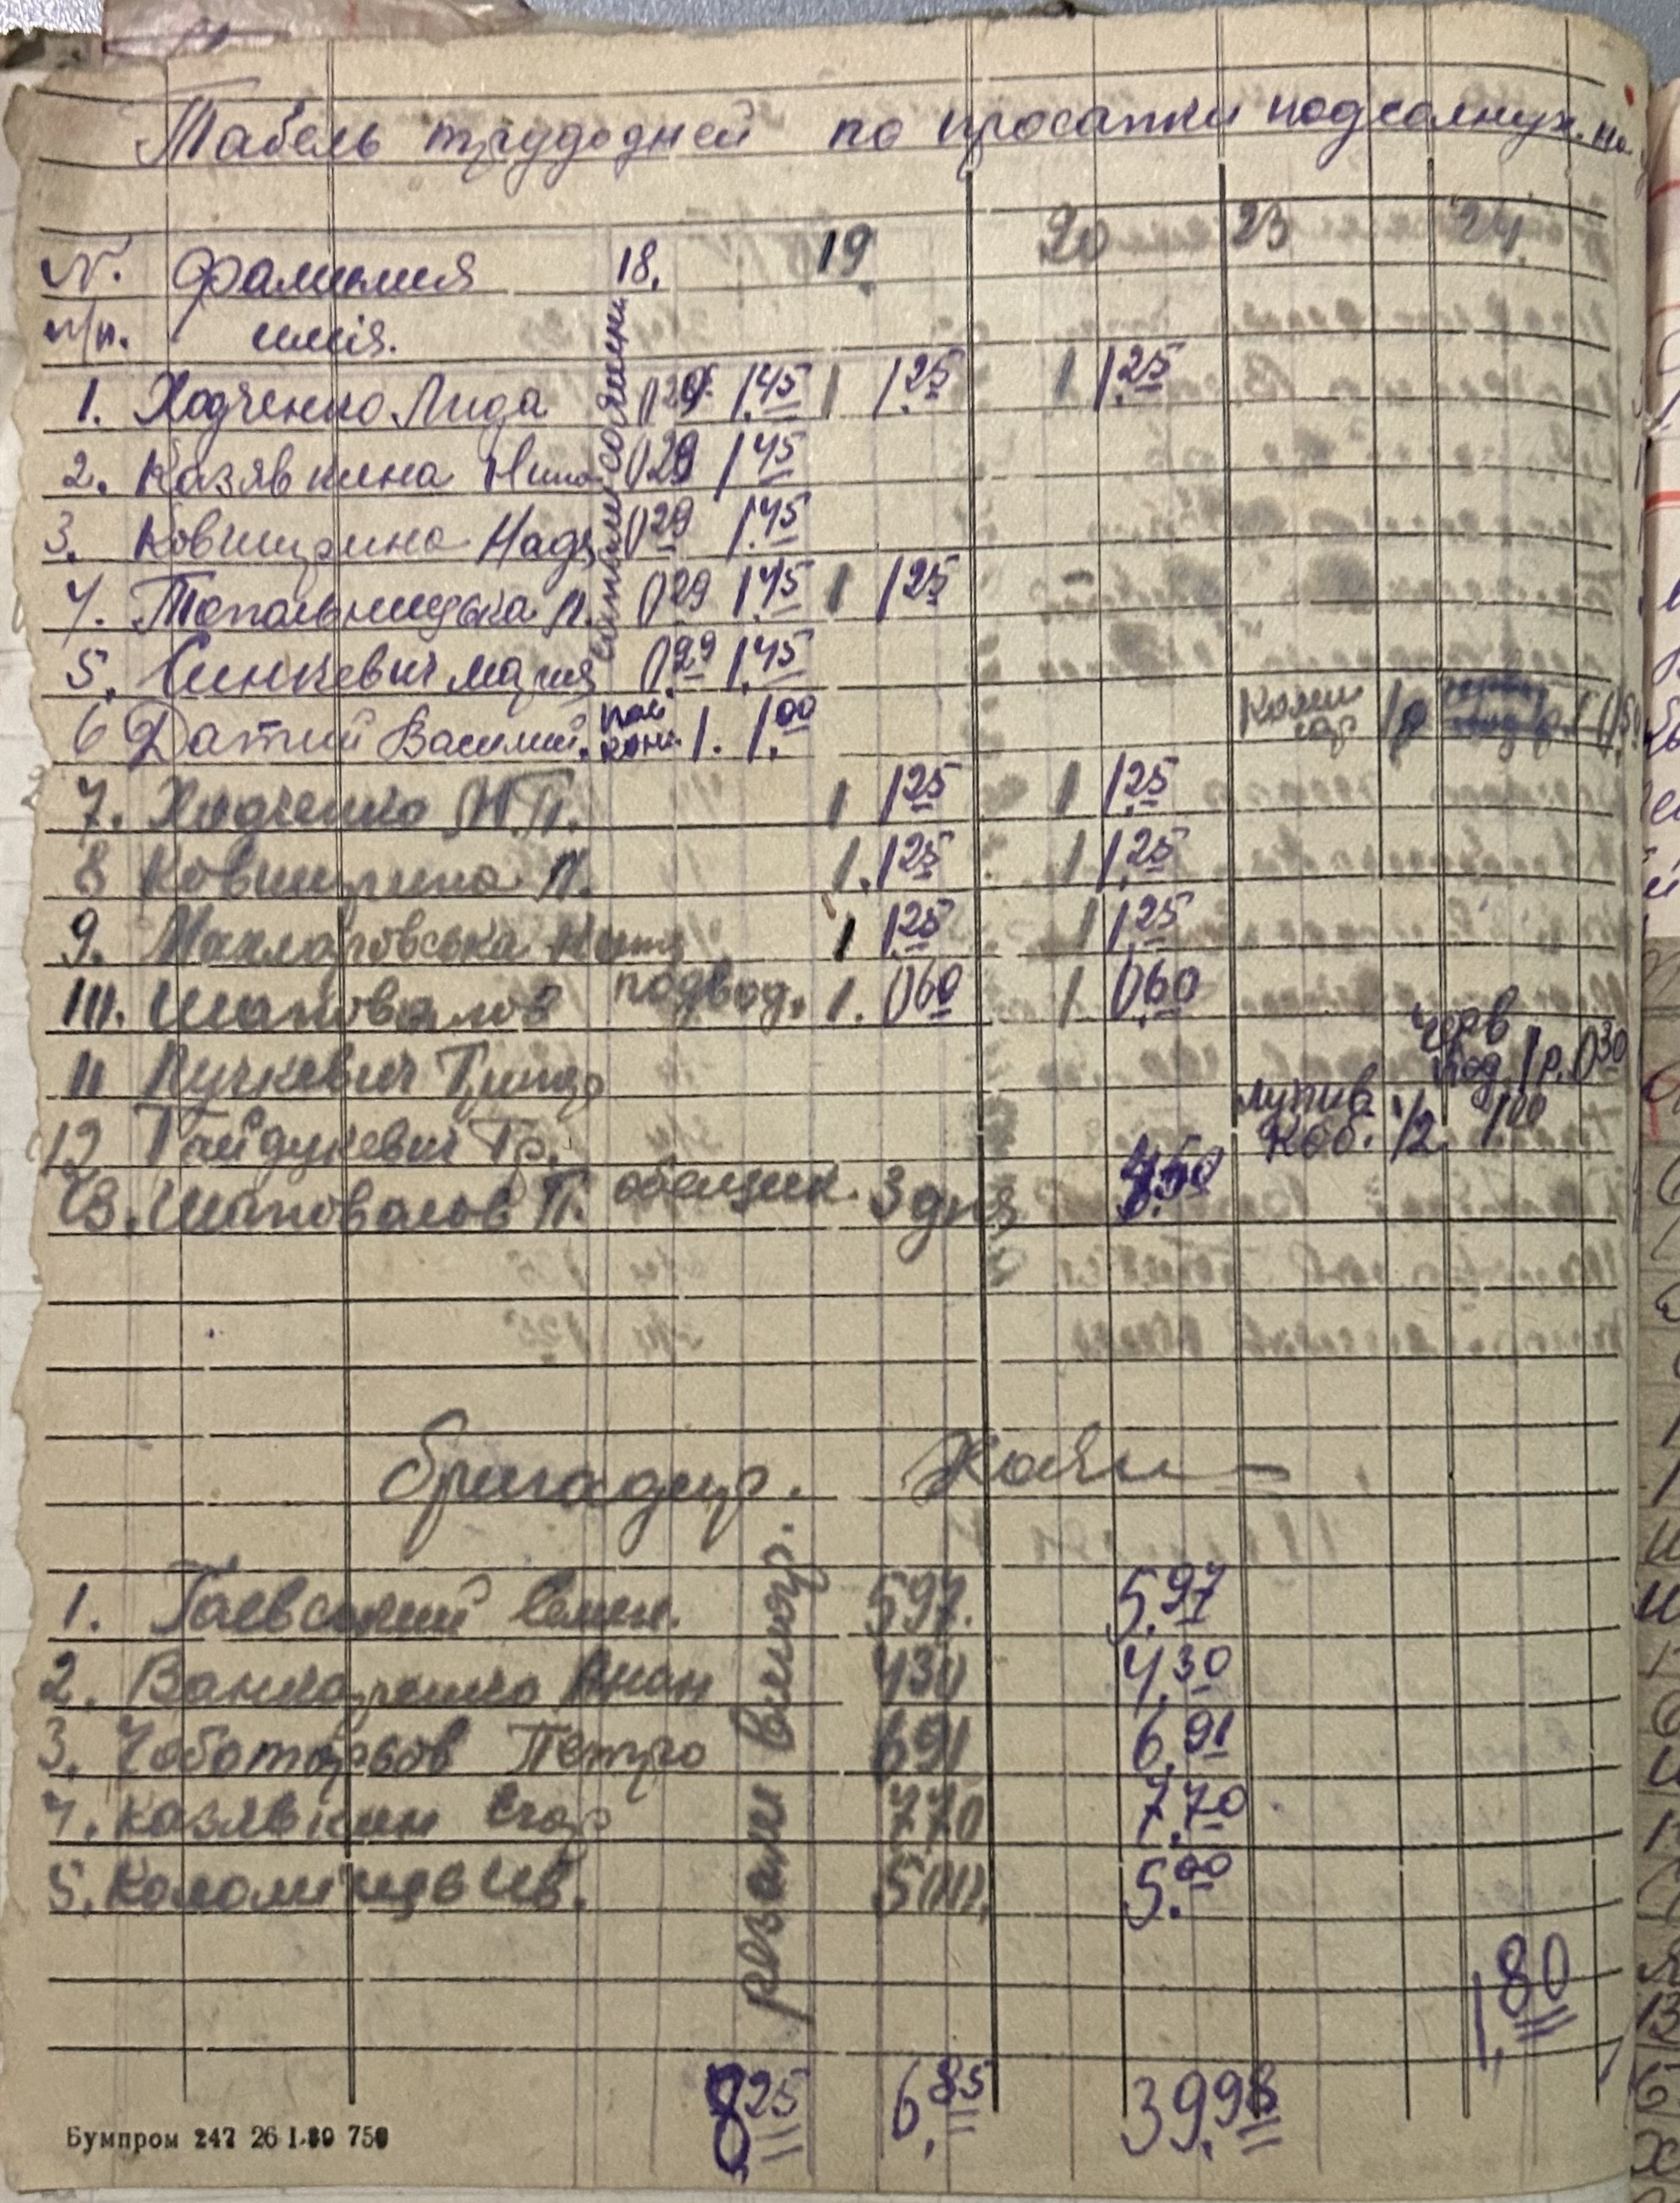 Табель трудодней по просапки подсолнух. на
N. Фамилия 18. 19 20 23 24.
п/п. имія.
1. Ходченко Лида 0,29 1.45 1 1.25 1 1.25
2. Козявкина Нина 029 1.45
3. Ковширина Надя 029 1.45
4. Топольницька Л. 029 1.45 1 1 25
5. Синкевич Мария 0,29 1.45
6 Датий Василий. кон. 1. 1.00
7. Ходченко М.П. 1 1 25 1 1,25
8 Ковширина Л. 1. 1 25 1 1,25
9. Маклаговська Катя 1 1 25 1 1,25
10. Шаповалов подвод. 1. 060 1 0,60
черв
11 Лучкевич Тимор под 1 р. 0 30
12 Гайдукевич Гр. лупив коб. 1/2 1.00
13. Шаповалов П. обещик. 3 дня 4.50
бригадир.
1. Гаевський Семен. 597. 5.97
2. Ванжа 430 4,30
3. Чоботарьов Петро 691 6,91
4. Козявкин Єгор 770 7,70
5. Коломієць Ив. 500. 5.00
резали
1,80
8,25 6,85 39,98
Бумпром 247 26 I-30 750